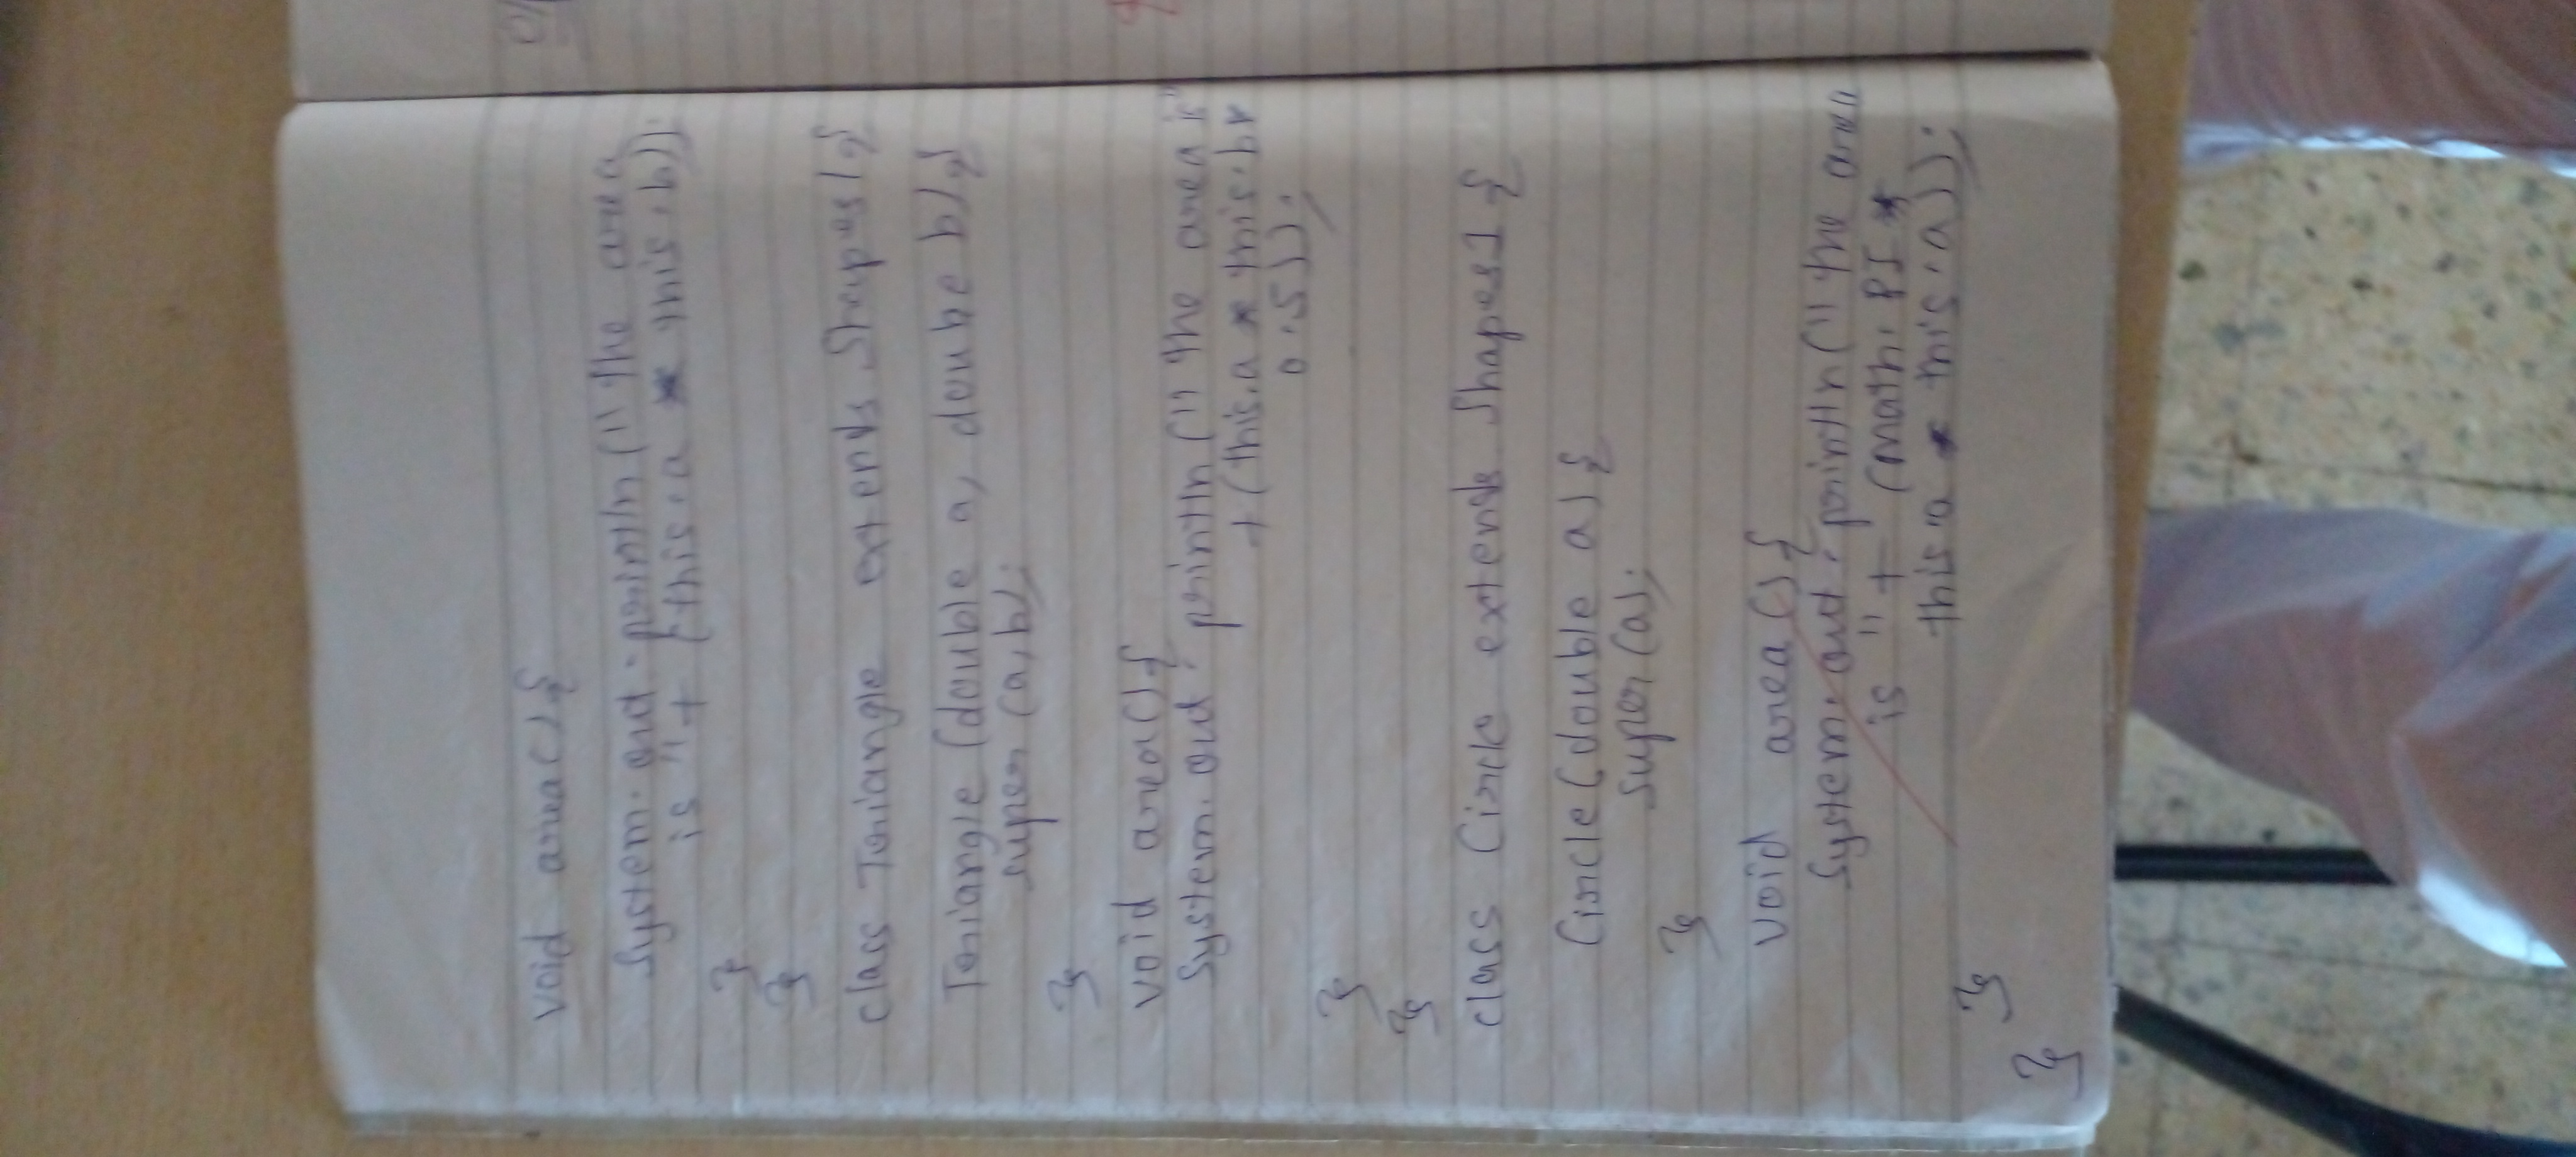 void area(){
System.out.println("The area
is"+(this.a * this.b));
}
}
class Triangle extends Shapes1{
Triangle(double a, double b){
super(a,b);
}
void area(){
System.out.println("The area is"
+(this.a * this.b*
0.5));
}
}
class Circle extends Shapes1{
Circle(double a){
super(a);
}
void area(){
System.out.println("The area
is"+(math.PI*
this a * this.a));
}
}